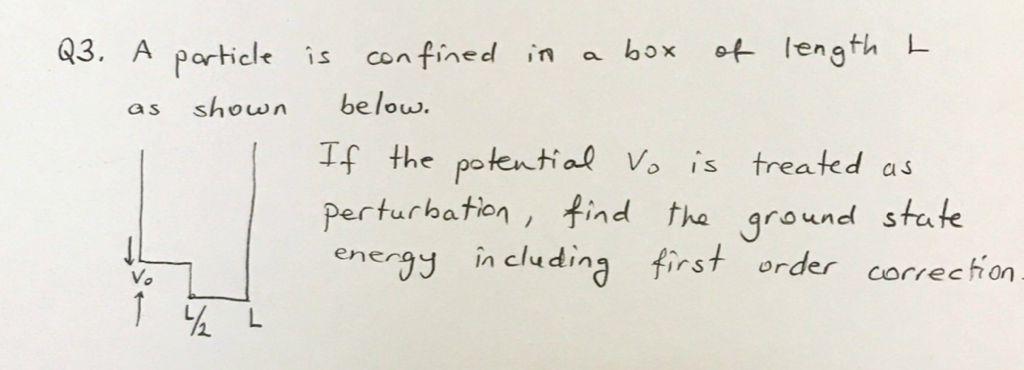 Q3. A particle is confined in a box of length L
as shown below.
If the potential V₀ is treated as
perturbation, find the ground state
energy including first order correction.
V₀
L/2 L